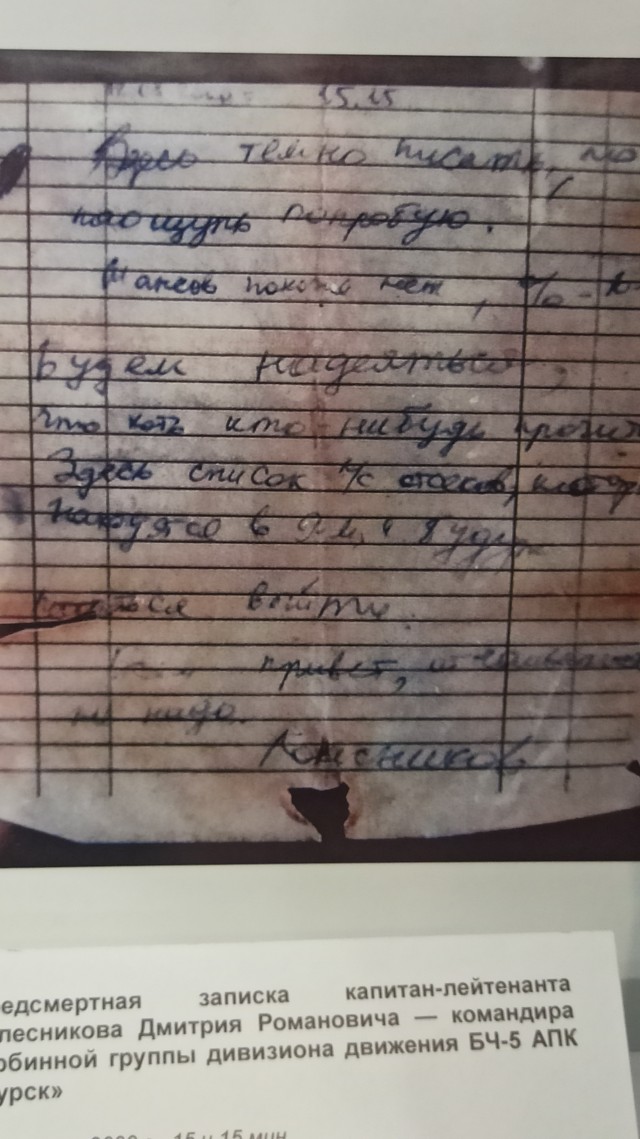 15.15
Здесь темно писать, но
наощупь попробую.
Шансов похоже нет, %
Будем надеяться,
что хоть кто-нибудь
Здесь список л/с отсеков,
находятся в 9-м и будут
войти.
привет,
не надо.
Колесников
едсмертная записка капитан-лейтенанта
лесникова Дмитрия Романовича — командира
рбинной группы дивизиона движения БЧ-5 АПК
урск»
15 ч 15 мин